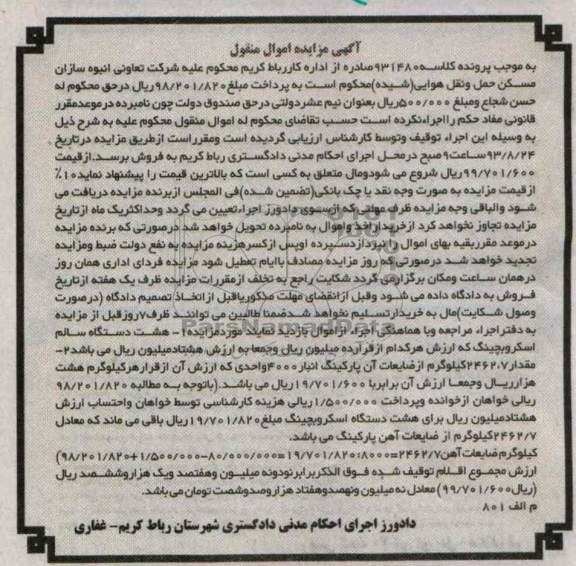 آگهی مزایده اموال منقول
به موجب پرونده کلاسه۹۳۱۴۸۰صادره از اداره کاررباط کریم محکوم علیه شرکت تعاونی انبوه سازان
مسکن حمل ونقل هوایی(شیده)محکوم است به پرداخت مبلغ۹۸/۲۰۱/۸۲۰ریال درحق محکوم له
حسن شجاع ومبلغ ۵۰۰/۰۰۰ریال بعنوان نیم عشردولتی درحق صندوق دولت چون نامبرده درموعدمقرر
قانونی مفاد حکم رااجراءنکرده است حسب تقاضای محکوم له اموال منقول محکوم علیه به شرح ذیل
به وسیله این اجراء توقیف وتوسط کارشناس ارزیابی گردیده است ومقرراست ازطریق مزایده درتاریخ
۹۳/۸/۲۴ساعت۹صبح درمحل اجرای احکام مدنی دادگستری رباط کریم به فروش برسد.ازقیمت
۹۹/۷۰۱/۶۰۰ریال شروع می شودومال متعلق به کسی است که بالاترین قیمت را پیشنهاد نماید۱۰٪
ازقیمت مزایده به صورت وجه نقد یا چک بانکی(تضمین شده)فی المجلس ازبرنده مزایده دریافت می
شود والباقی وجه مزایده ظرف مهلتی که ازسوی دادورز اجراءتعیین می گردد وحداکثریک ماه ازتاریخ
مزایده تجاوز نخواهد کرد ازخریداراخذ واموال به نامبرده تحویل خواهد شد درصورتی که برنده مزایده
درموعد مقرربقیه بهای اموال را نپردازدسپرده اوپس ازکسرهزینه مزایده به نفع دولت ضبط ومزایده
تجدید خواهد شد درصورتی که روز مزایده مصادف باایام تعطیل شود مزایده فردای اداری همان روز
درهمان ساعت ومکان برگزارمی گردد شکایت راجع به تخلف ازمقررات مزایده ظرف یک هفته ازتاریخ
فروش به دادگاه داده می شود وقبل ازانقضای مهلت مذکوریاقبل ازاتخاذ تصمیم دادگاه (درصورت
وصول شکایت)مال به خریدارتسلیم نخواهد شدضمنا طالبین می توانند ظرف۷روزقبل از مزایده
به دفتراجراء مراجعه وبا هماهنگی اجراء ازاموال بازدید نمایند موردمزایده۱- هشت دستگاه سالم
اسکروبچینگ که ارزش هرکدام ازقرارده میلیون ریال وجمعا به ارزش هشتادمیلیون ریال می باشد۲-
مقدار۲۴۶۲،۷کیلوگرم ازضایعات آن پارکینگ انبار۴۰۰۰واحدی که ارزش آن ازقرارهرکیلوگرم هشت
هزارریال وجمعا ارزش آن برابربا ۱۹/۷۰۱/۶۰۰ریال می باشد.(باتوجه به مطالبه ۹۸/۲۰۱/۸۲۰
ریالی خواهان ازخوانده وپرداخت ۱/۵۰۰/۰۰۰ریالی هزینه کارشناسی توسط خواهان واحتساب ارزش
هشتادمیلیون ریال برای هشت دستگاه اسکروبچینگ مبلغ۱۹/۷۰۱/۸۲۰ریال باقی می ماند که معادل
۲۴۶۲/۷کیلوگرم از ضایعات آهن پارکینگ می باشد.
کیلوگرم ضایعات آهن۲۴۶۲/۷=۸۰۰۰:۱۹/۷۰۱/۸۲۰=۸۰/۰۰۰/۰۰۰-۹۸/۲۰۱/۸۲۰+۱/۵۰۰/۰۰۰)
ارزش مجموع اقلام توقیف شده فوق الذکربرابرنودونه میلیون وهفتصد ویک هزاروششصد ریال
(ریال۹۹/۷۰۱/۶۰۰) معادل نه میلیون ونهصدوهفتاد هزاروصدوشصت تومان می باشد.
م الف ۸۰۱
دادورز اجرای احکام مدنی دادگستری شهرستان رباط کریم- غفاری